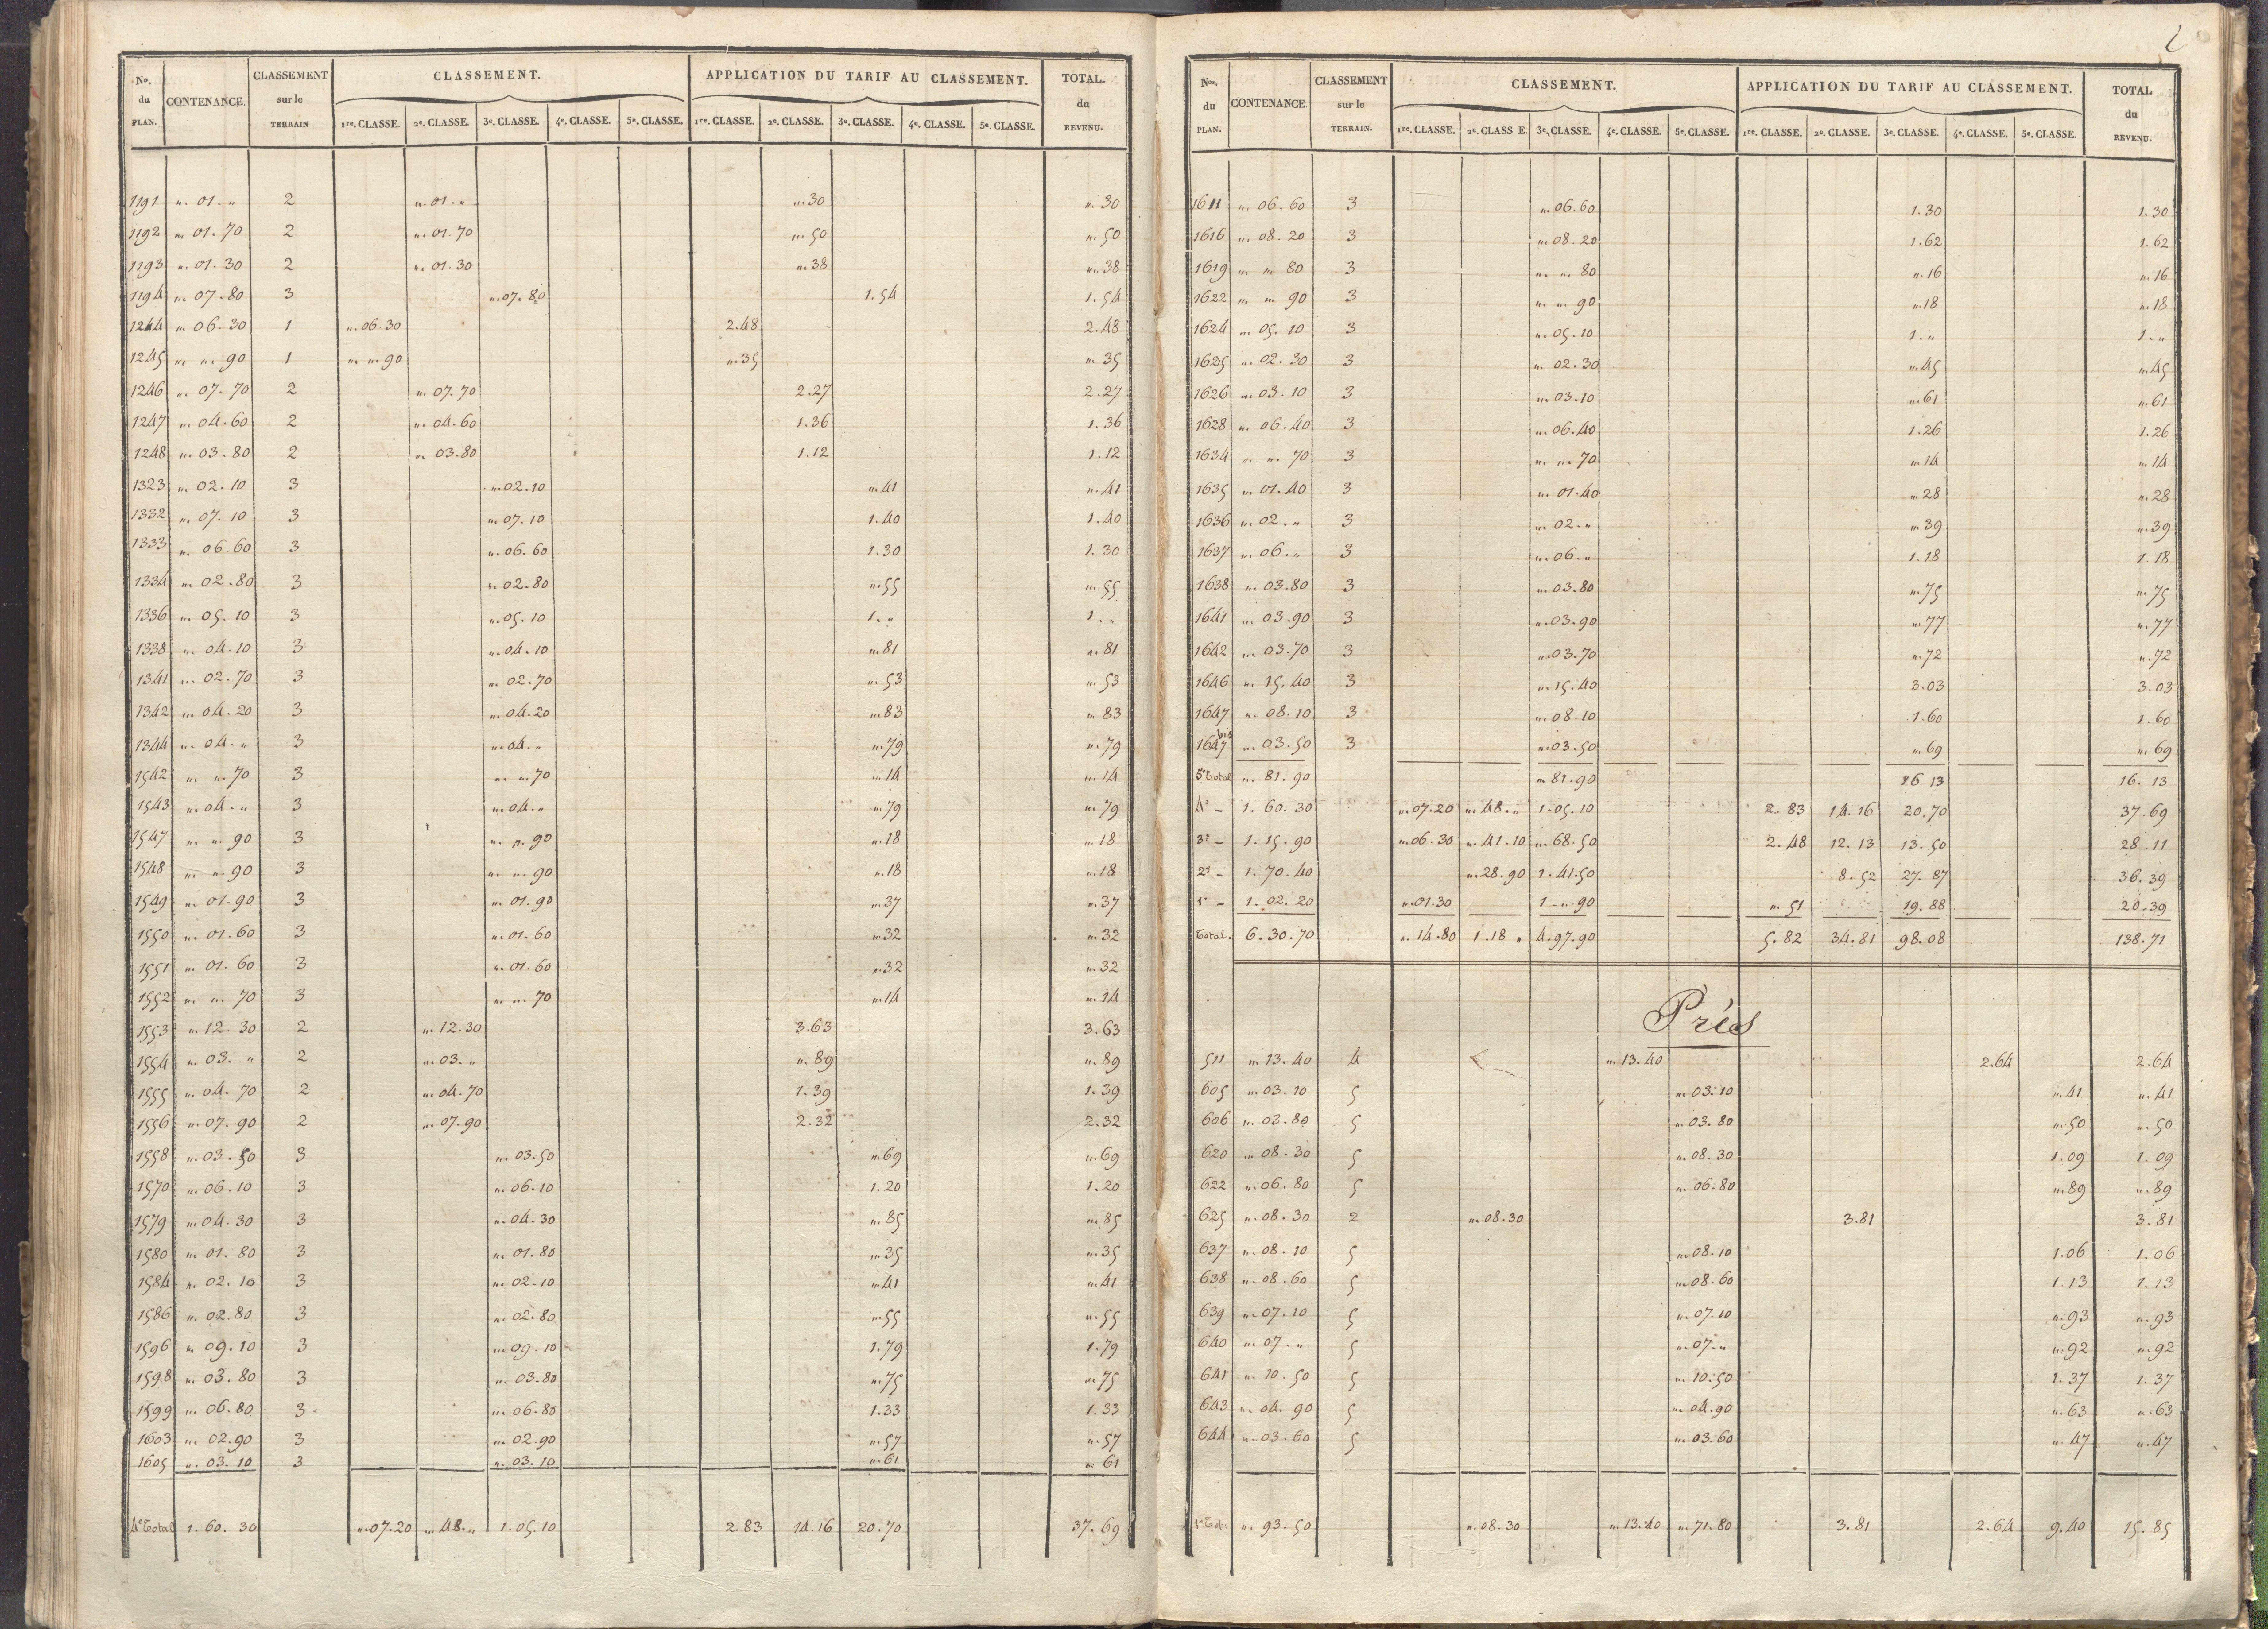 Nos. du PLAN. CONTENANCE. CLASSEMENT sur le TERRAIN CLASSEMENT. APPLICATION DU TARIF AU CLASSEMENT. TOTAL. du REVENU.
1re. CLASSE. 2e. CLASSE. 3e. CLASSE. 4e. CLASSE. 5e. CLASSE. 1re. CLASSE. 2e. CLASSE. 3e. CLASSE. 4e. CLASSE. 5e. CLASSE.
1191 " 01 . " 2 " 01 . " " 30 " 30
1192 " 01 . 70 2 " 01 . 70 " 50 " 50
1193 " 01 . 30 2 " 01 . 30 " 38 " 38
1194 " 07 . 80 3 " 07 . 80 1 . 54 1 . 54
1244 " 06 . 30 1 " 06 . 30 2 . 48 2 . 48
1245 " " 90 1 " " 90 " 35 " 35
1246 " 07 . 70 2 " 07 . 70 2 . 27 2 . 27
1247 " 04 . 60 2 " 04 . 60 1 . 36 1 . 36
1248 " 03 . 80 2 " 03 . 80 1 . 12 1 . 12
1323 " 02 . 10 3 " 02 . 10 " 41 " 41
1332 " 07 . 10 3 " 07 . 10 1 . 40 1 . 40
1333 " 06 . 60 3 " 06 . 60 1 . 30 1 . 30
1334 " 02 . 80 3 " 02 . 80 " 55 " 55
1336 " 05 . 10 3 " 05 . 10 1 . " 1 . "
1338 " 04 . 10 3 " 04 . 10 " 81 " 81
1341 " 02 . 70 3 " 02 . 70 " 53 " 53
1342 " 04 . 20 3 " 04 . 20 " 83 " 83
1344 " 04 . " 3 " 04 . " " 79 " 79
1542 " " 70 3 " " 70 " 14 " 14
1543 " 04 . " 3 " 04 . " " 79 " 79
1547 " " 90 3 " " 90 " 18 " 18
1548 " " 90 3 " " 90 " 18 " 18
1549 " 01 . 90 3 " 01 . 90 " 37 " 37
1550 " 01 . 60 3 " 01 . 60 " 32 " 32
1551 " 01 . 60 3 " 01 . 60 " 32 " 32
1552 " " 70 3 " " 70 " 14 " 14
1553 " 12 . 30 2 " 12 . 30 3 . 63 3 . 63
1554 " 03 . " 2 " 03 . " " 89 " 89
1555 " 04 . 70 2 " 04 . 70 1 . 39 1 . 39
1556 " 07 . 90 2 " 07 . 90 2 . 32 2 . 32
1558 " 03 . 50 3 " 03 . 50 " 69 " 69
1570 " 06 . 10 3 " 06 . 10 1 . 20 1 . 20
1579 " 04 . 30 3 " 04 . 30 " 85 " 85
1580 " 01 . 80 3 " 01 . 80 " 35 " 35
1584 " 02 . 10 3 " 02 . 10 " 41 " 41
1586 " 02 . 80 3 " 02 . 80 " 55 " 55
1596 " 09 . 10 3 " 09 . 10 1 . 79 1 . 79
1598 " 03 . 80 3 " 03 . 80 " 75 " 75
1599 " 06 . 80 3 " 06 . 80 1 . 33 1 . 33
1603 " 02 . 90 3 " 02 . 90 " 57 " 57
1605 " 03 . 10 3 " 03 . 10 " 61 " 61
4e Total 1 . 60 . 30 " 07 . 20 " 48 . " 1 . 05 . 10 2 . 83 14 . 16 20 . 70 37 . 69
Nos. du PLAN. CONTENANCE. CLASSEMENT sur le TERRAIN. CLASSEMENT. APPLICATION DU TARIF AU CLASSEMENT. TOTAL du REVENU.
1re. CLASSE. 2e. CLASS E. 3e. CLASSE. 4e. CLASSE. 5e. CLASSE. 1re. CLASSE. 2e. CLASSE. 3e. CLASSE. 4e. CLASSE. 5e. CLASSE.
1611 " 06 . 60 3 " 06 . 60 1 . 30 1 . 30
1616 " 08 . 20 3 " 08 . 20 1 . 62 1 . 62
1619 " " 80 3 " " 80 " 16 " 16
1622 " " 90 3 " " 90 " 18 " 18
1624 " 05 . 10 3 " 05 . 10 1 . " 1 . "
1625 " 02 . 30 3 " 02 . 30 " 45 " 45
1626 " 03 . 10 3 " 03 . 10 " 61 " 61
1628 " 06 . 40 3 " 06 . 40 1 . 26 1 . 26
1634 " " 70 3 " " 70 " 14 " 14
1635 " 01 . 40 3 " 01 . 40 " 28 " 28
1636 " 02 . " 3 " 02 . " " 39 " 39
1637 " 06 . " 3 " 06 . " 1 . 18 1 . 18
1638 " 03 . 80 3 " 03 . 80 " 75 " 75
1641 " 03 . 90 3 " 03 . 90 " 77 " 77
1642 " 03 . 70 3 " 03 . 70 " 72 " 72
1646 " 15 . 40 3 " 15 . 40 3 . 03 3 . 03
1647 " 08 . 10 3 " 08 . 10 1 . 60 1 . 60
1647 bis " 03 . 50 3 " 03 . 50 " 69 " 69
5e Total " 81 . 90 " 81 . 90 16 13 16 . 13
4e - 1 . 60 . 30 " 07 . 20 " 48 . " 1 . 05 . 10 2 . 83 14 . 16 20 . 70 37 . 69
3e - 1 . 15 . 90 " 06 . 30 " 41 . 10 " 68 . 50 2 . 48 12 . 13 13 . 50 28 . 11
2e - 1 . 70 . 40 " 28 . 90 1 . 41 . 50 8 . 52 27 . 87 36 . 39
1e - 1 . 02 . 20 " 01 . 30 1 - " . 90 " 51 19 . 88 20 . 39
Total . 6 . 30 . 70 " 14 . 80 1 . 18 " 4 . 97 . 90 5 . 82 34 . 81 98 . 08 138 . 71
Prés
511 " 13 . 40 4 " 13 . 40 2 . 64 2 . 64
605 " 03 . 10 5 " 03 . 10 " 41 " 41
606 " 03 . 80 5 " 03 . 80 " 50 " 50
620 " 08 . 30 5 " 08 . 30 1 . 09 1 . 09
622 " 06 . 80 5 " 06 . 80 " 89 " 89
625 " 08 . 30 2 " 08 . 30 3 . 81 3 . 81
637 " 08 . 10 5 " 08 . 10 1 . 06 1 . 06
638 " 08 . 60 5 " 08 . 60 1 . 13 1 . 13
639 " 07 . 10 5 " 07 . 10 " 93 " 93
640 " 07 . " 5 " 07 . " " 92 " 92
641 " 10 . 50 5 " 10 . 50 1 . 37 1 . 37
643 " 04 . 90 5 " 04 . 90 " 63 " 63
644 " 03 . 60 5 " 03 . 60 " 47 " 47
1e Tot. " 93 . 50 " 08 . 30 " 13 . 40 " 71 . 80 3 . 81 2 . 64 9 . 40 15 . 85